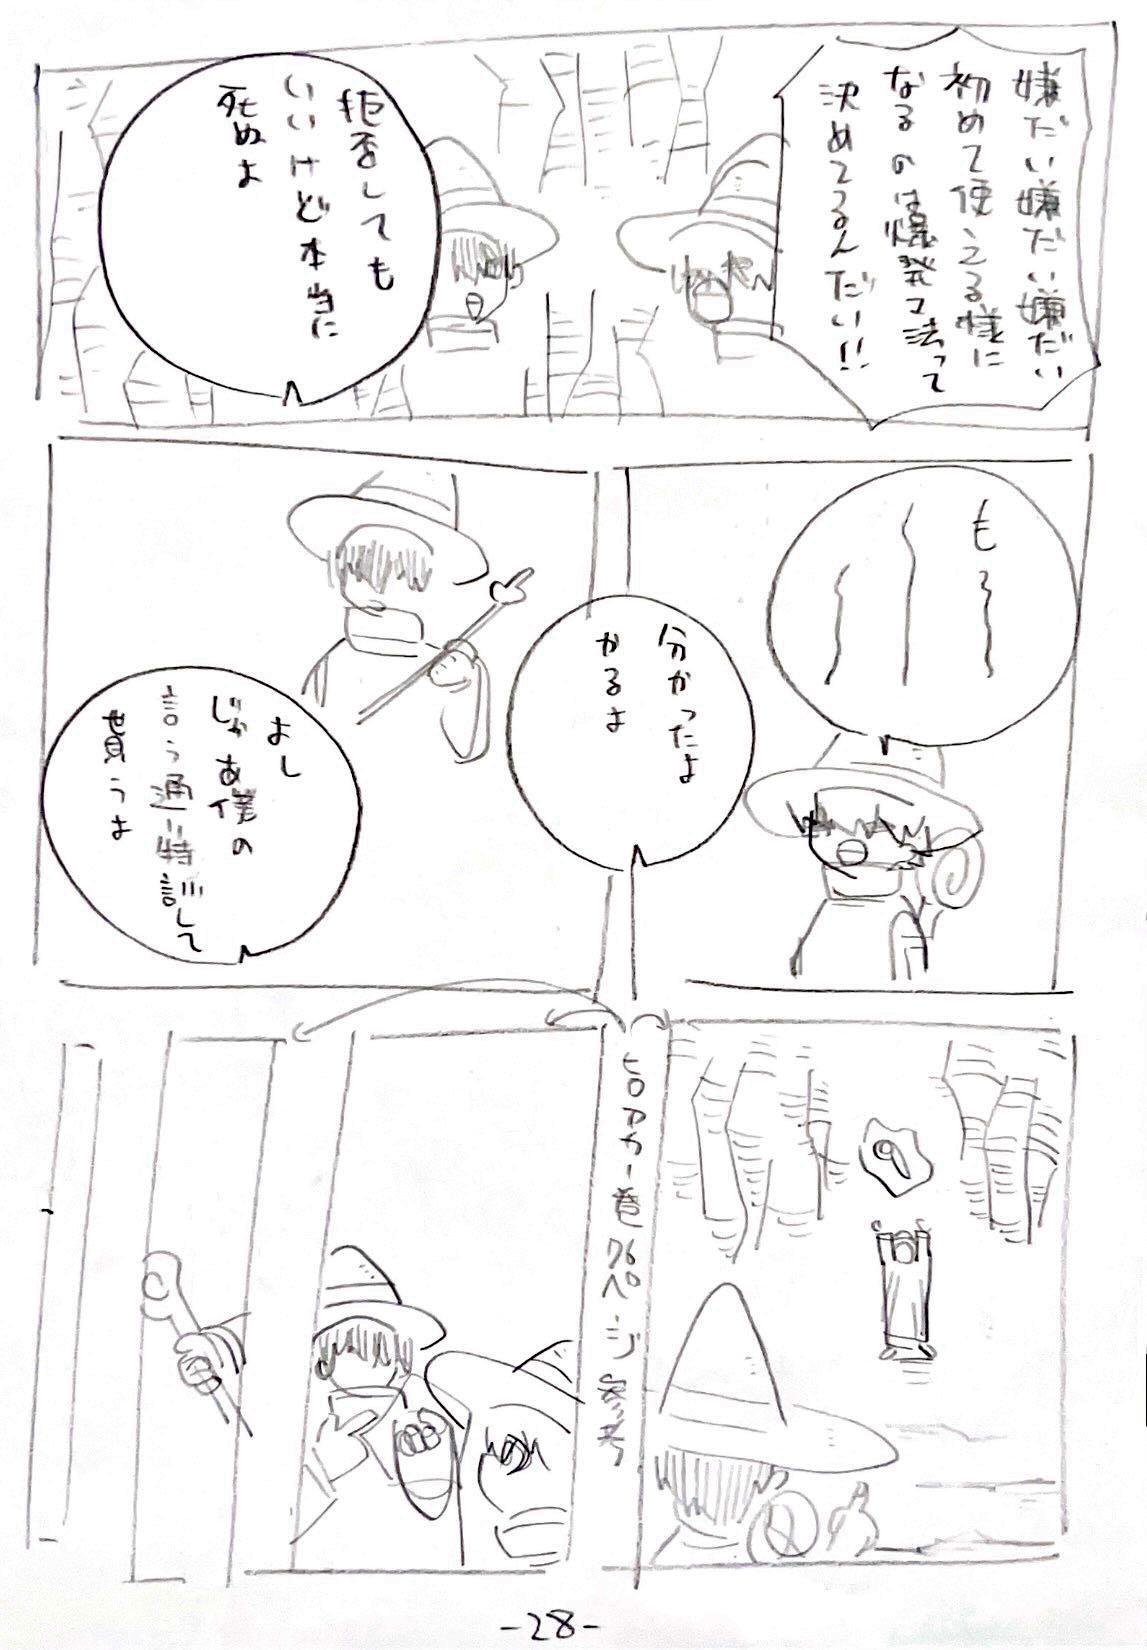 嫌だい嫌だい嫌だい
初めて使える様に
なるのは爆発マ法って
決めてるんだい!!
拒否しても
いいけど本当に
死ぬよ
も
分かったよ
かるよ
よし
じゃあ僕の
言う通り特訓して
貰うよ
ヒロアカ一巻76ページ参考
-28-